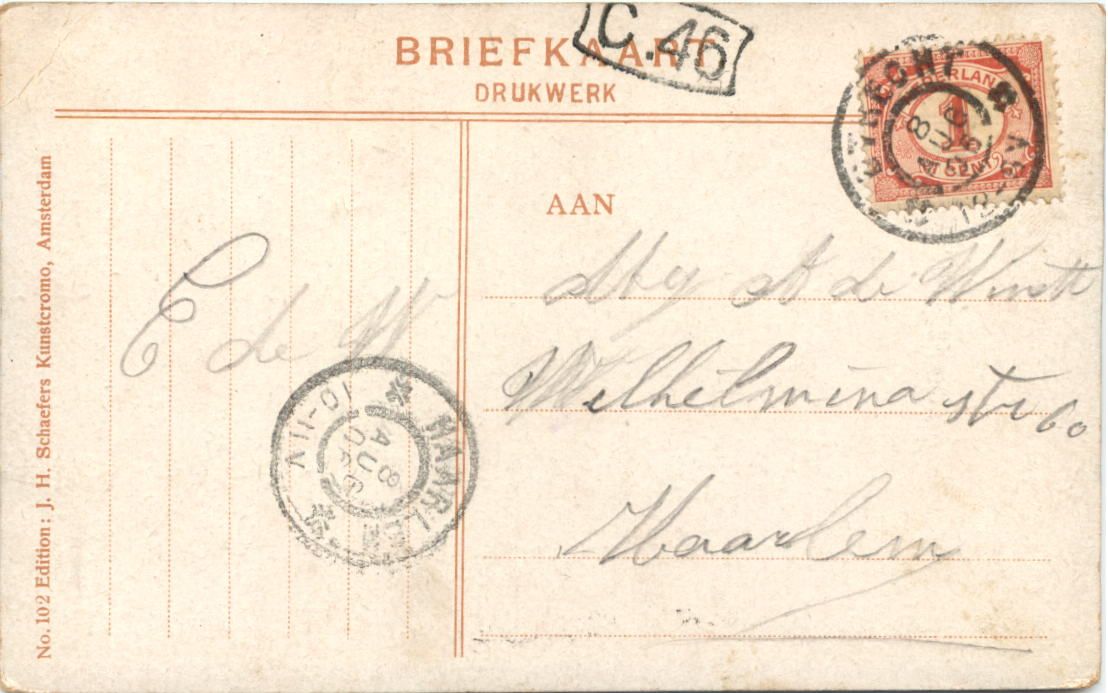 BRIEFKAART
C.46
DRUKWERK
UTRECHT
8
NEDERLAND
1
CENT
AAN
de
Wilhelmina str 60
Haarlem
E de W
HAARLEM
8 AUG
10-11V
No. 102 Edition: J. H. Schaefers Kunstcromo, Amsterdam